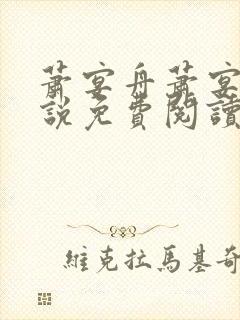 蕭宴舟蕭宴
說免費閱讀
維克拉馬基奇